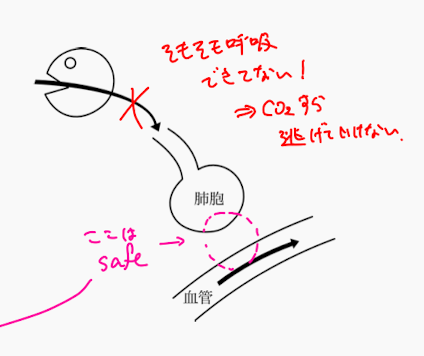 そもそも呼吸
できてない!
⇒ CO₂すら
逃げていけない.
肺胞
ここは
safe →
血管